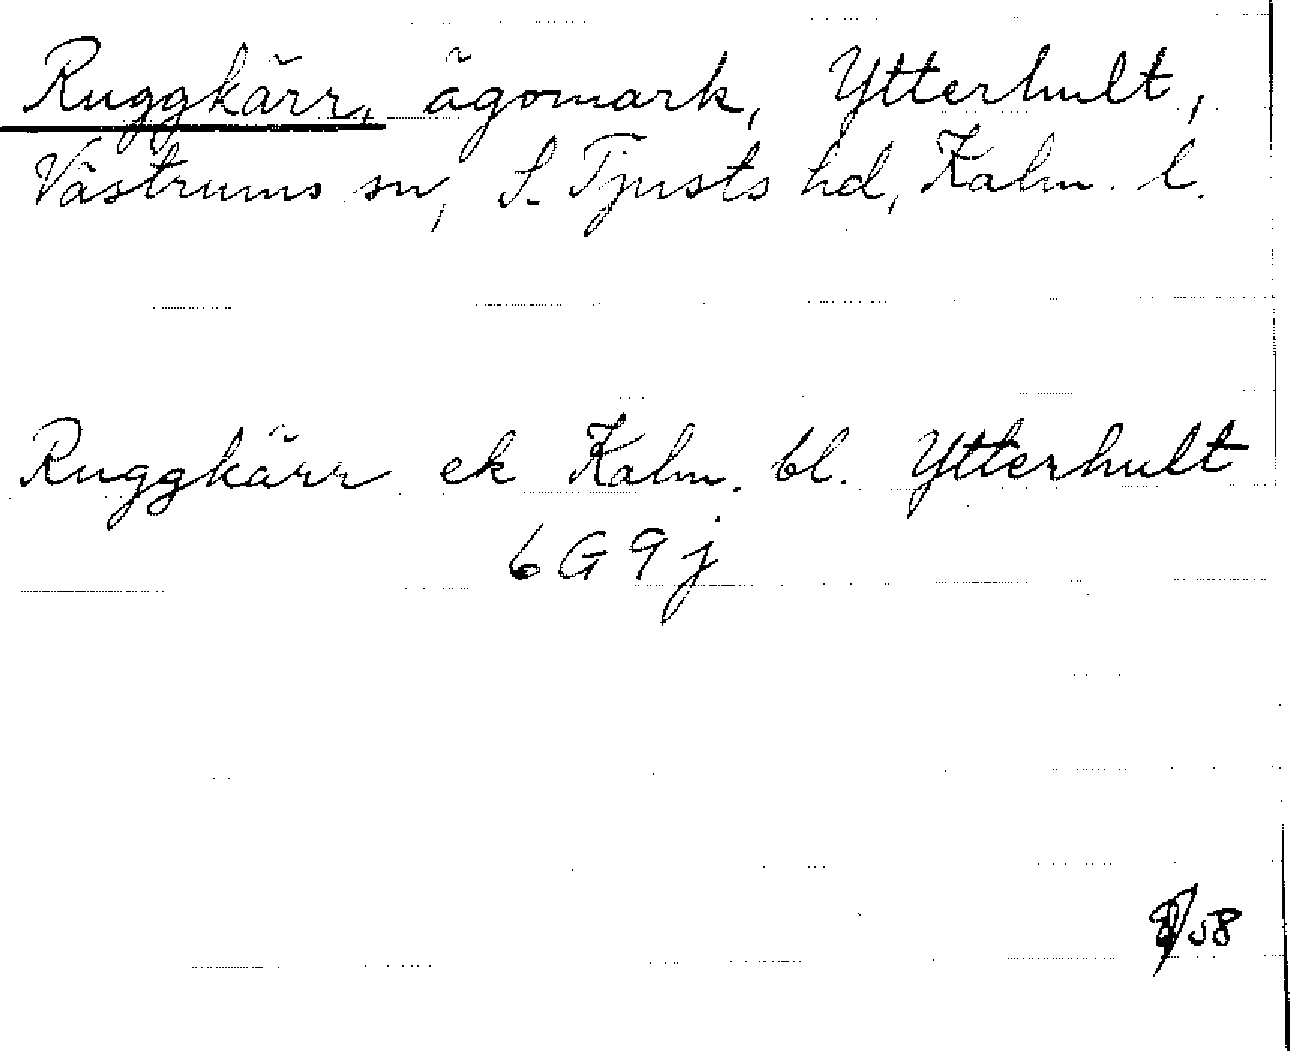 Ruggkärr, ägomark, Ytterhult,
Västrums sn, S. Tjusts hd, Kalm. l.
Ruggkärr ek Kalm. bl. Ytterhult
6G9j
58